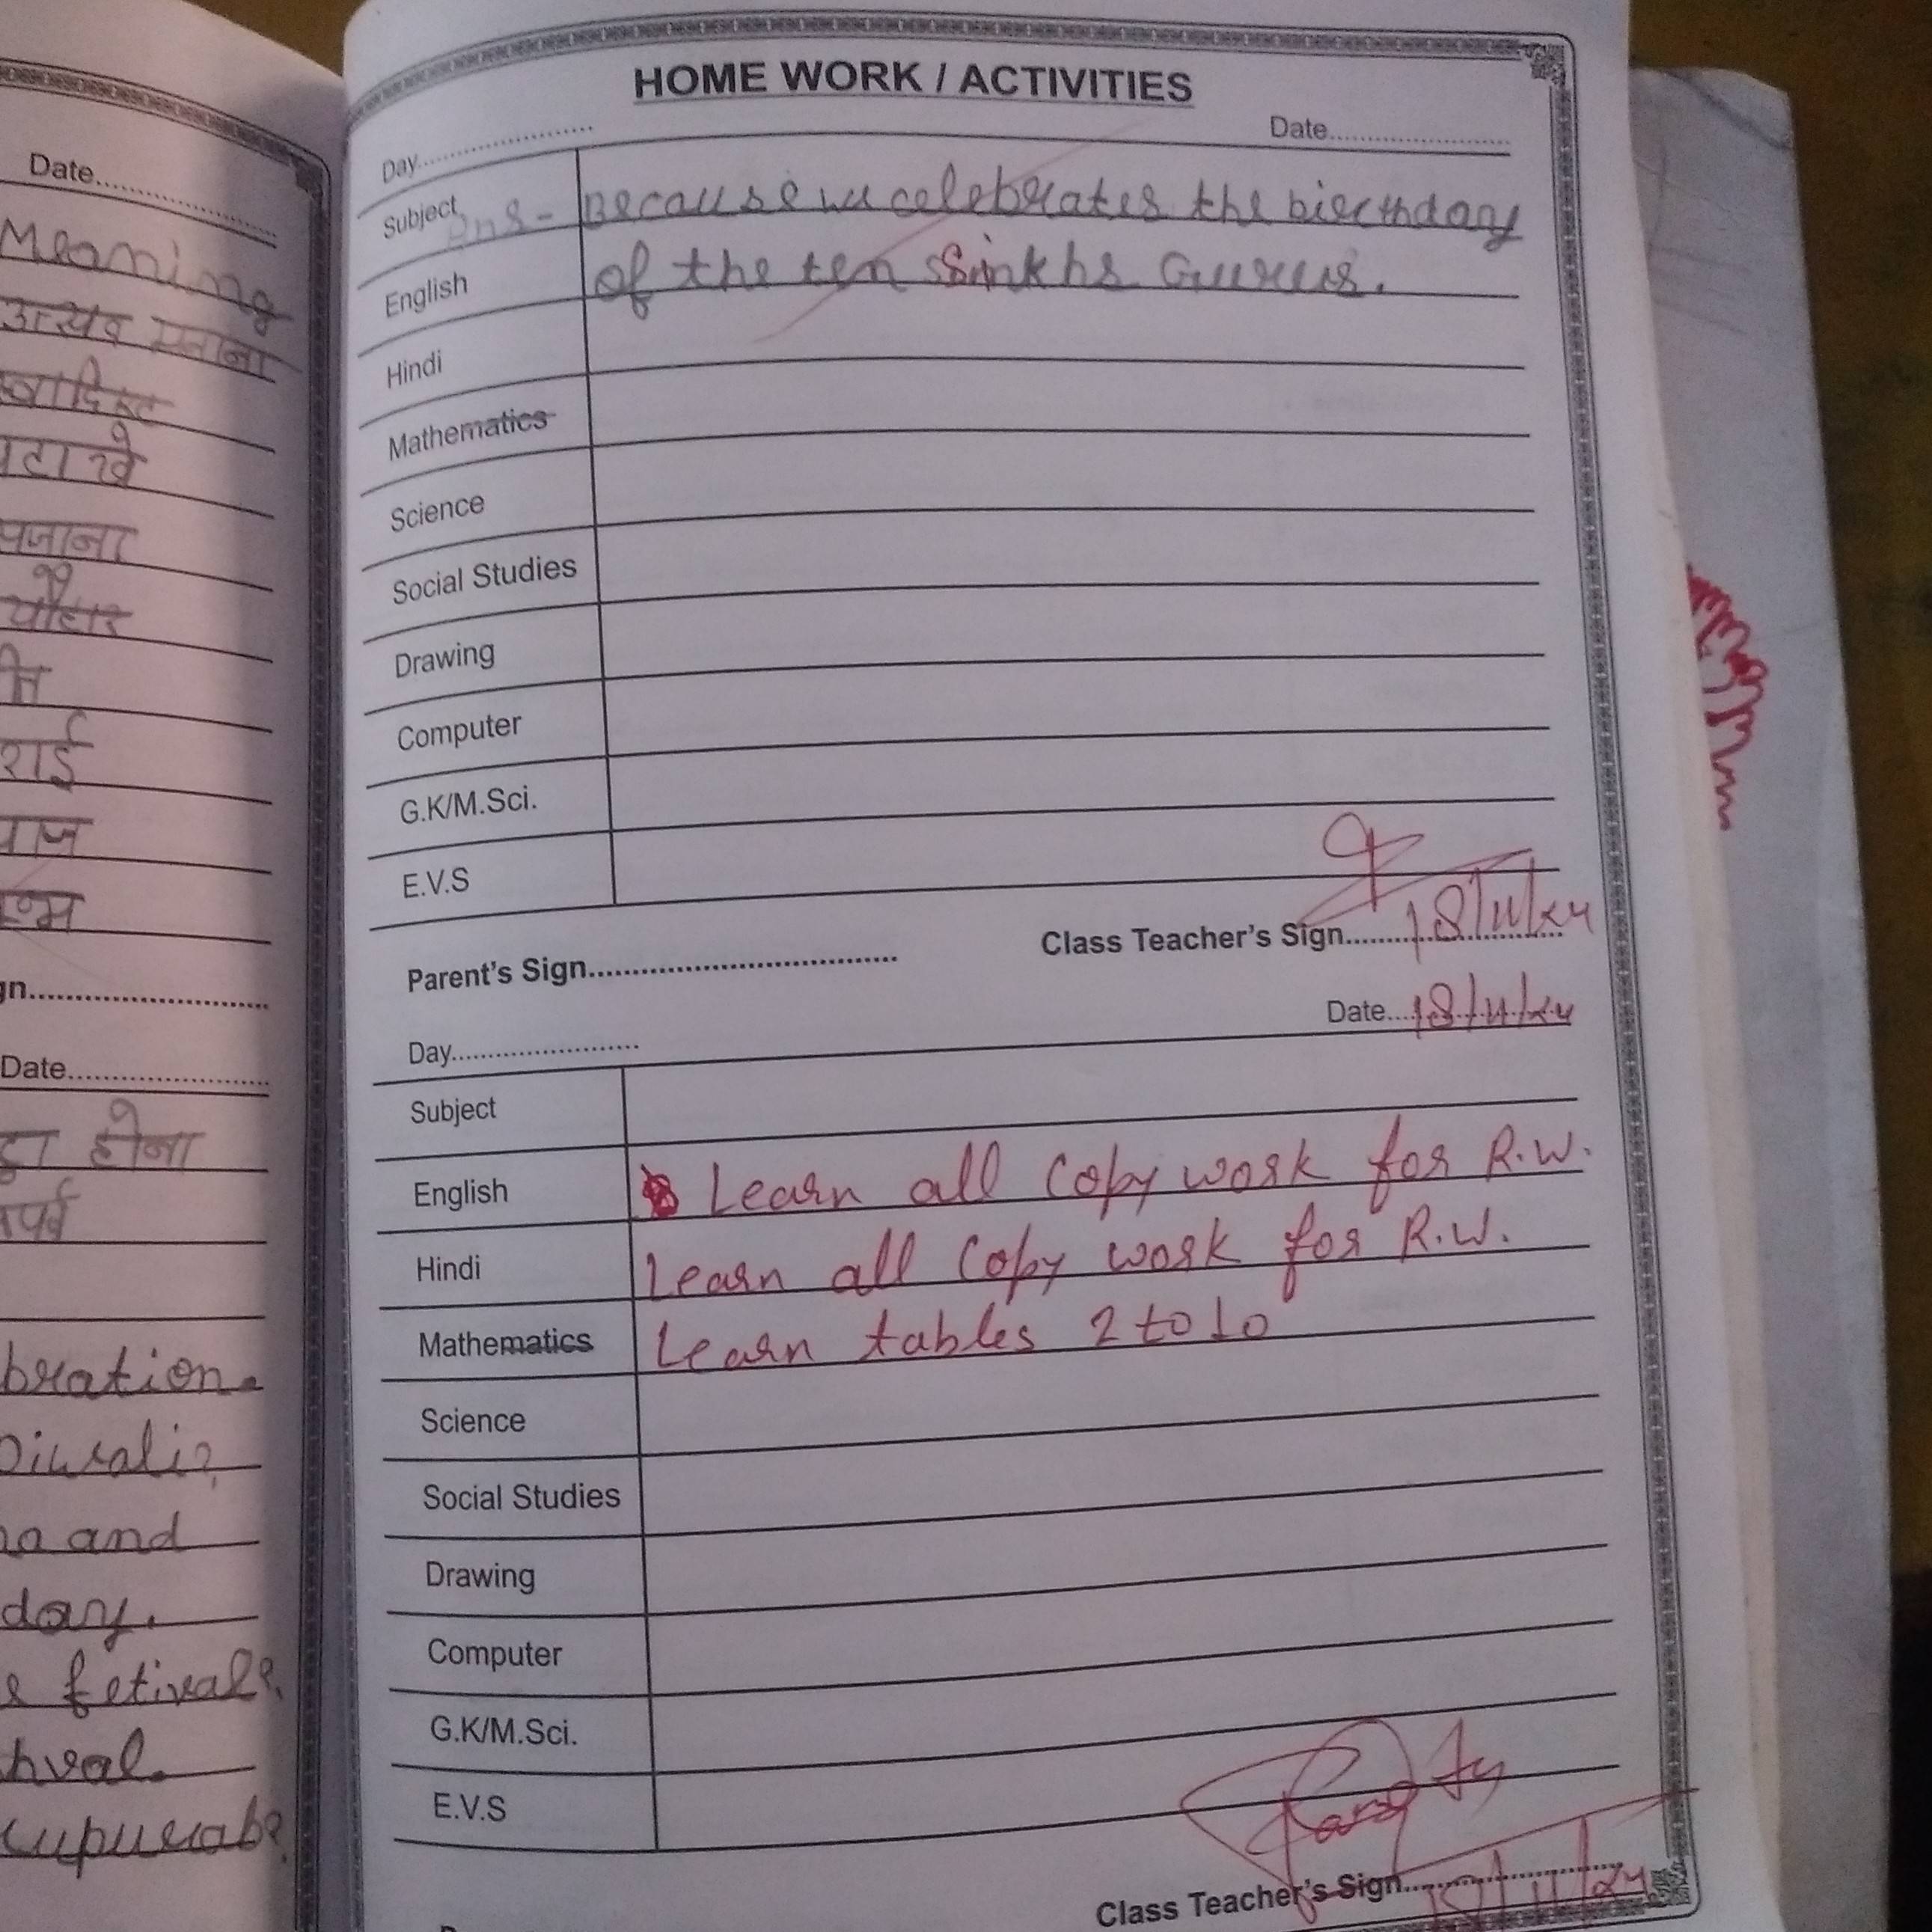 Date....................
Meaning
उत्सव मनाना
पटाखे
राई
gn..............................
Date....................
होना
bration.
Diwali?
and
day.
fetivals.
HOME WORK / ACTIVITIES
Day.................... Date....................
Subject Ans- Because we celebrates the birthday
English of the ten Sinkhs Gurus.
Hindi
Mathematics
Science
Social Studies
Drawing
Computer
G.K/M.Sci.
E.V.S
Parent's Sign.................................... Class Teacher's Sign.................... 18/11/24
Day.................... Date.... 18/11/24
Subject
English Learn all copy work for R.W.
Hindi Learn all copy work for R.W.
Mathematics Learn tables 2 to 10
Science
Social Studies
Drawing
Computer
G.K/M.Sci.
E.V.S
Class Teacher's Sign....................